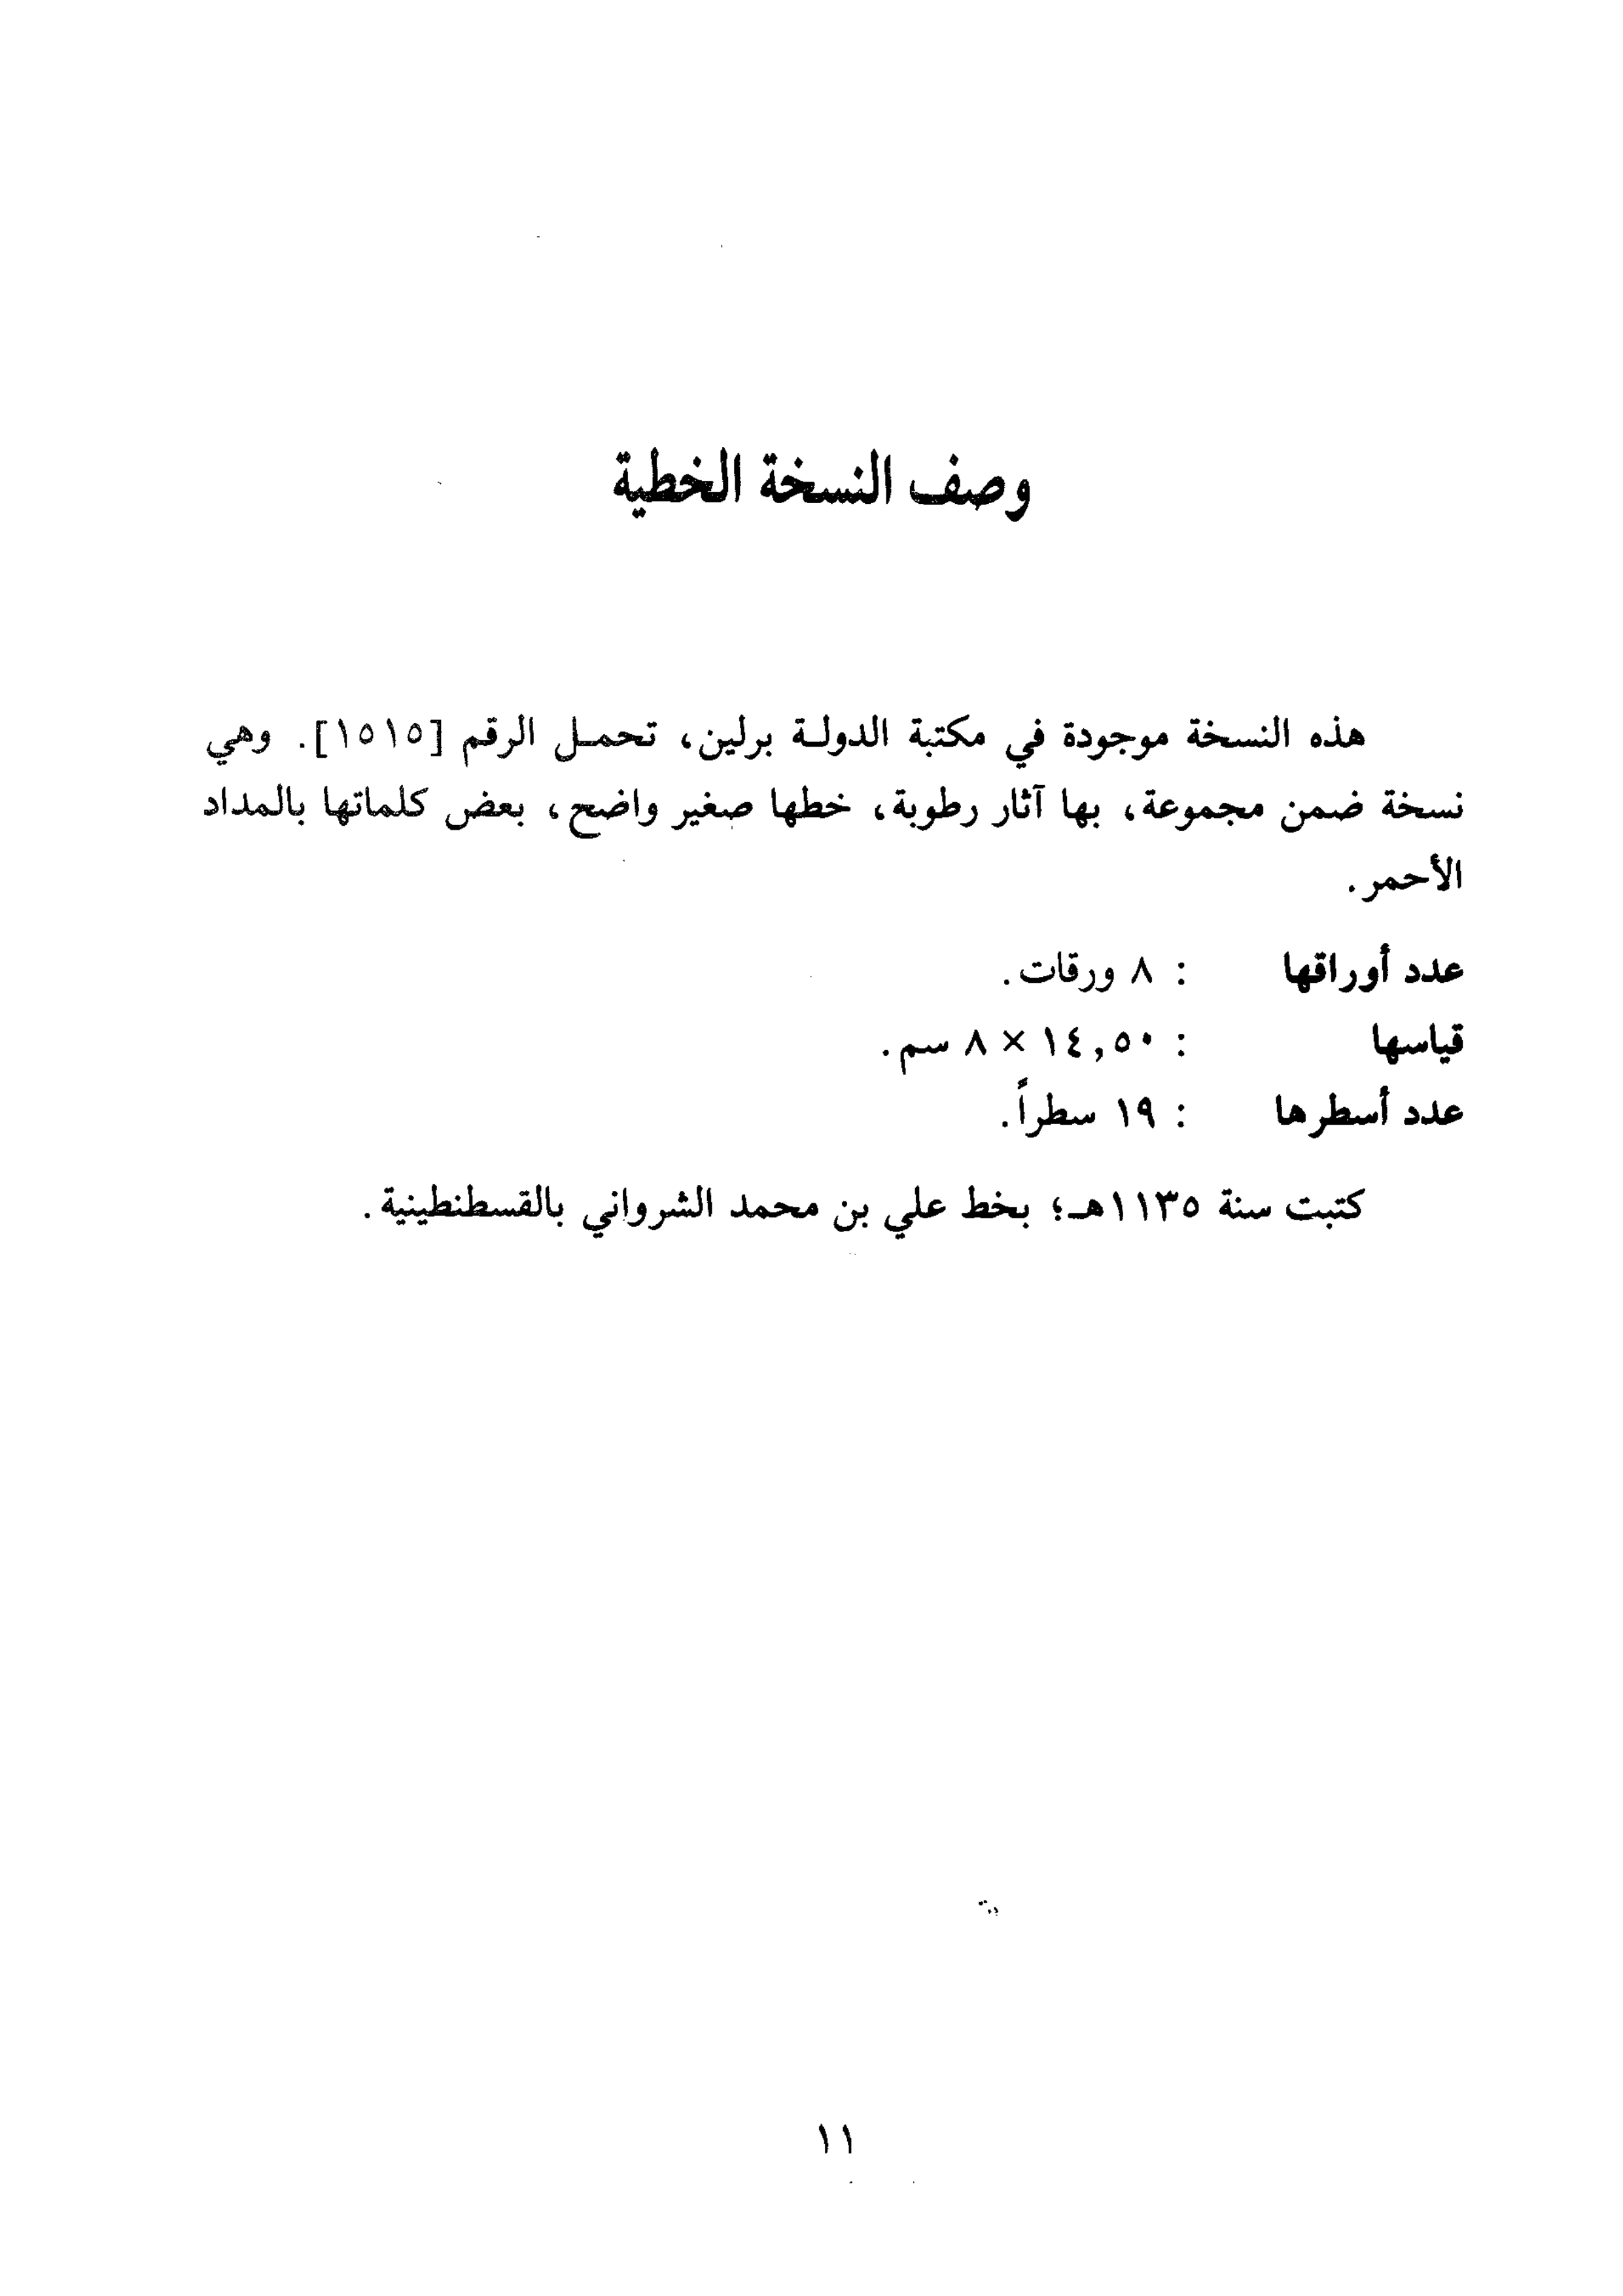 وصف النسخة الخطية
هذه النسخة موجودة في مكتبة الدولة برلين، تحمل الرقم [١٥١٥]. وهي
نسخة ضمن مجموعة، بها آثار رطوبة، خطها صغير واضح، بعض كلماتها بالمداد
الأحمر.
عدد أوراقها : ٨ ورقات.
قياسها : ١٤,٥٠ × ٨ سم.
عدد أسطرها : ١٩ سطراً.
كتبت سنة ١١٣٥هـ؛ بخط علي بن محمد الشرواني بالقسطنطينية.
١١